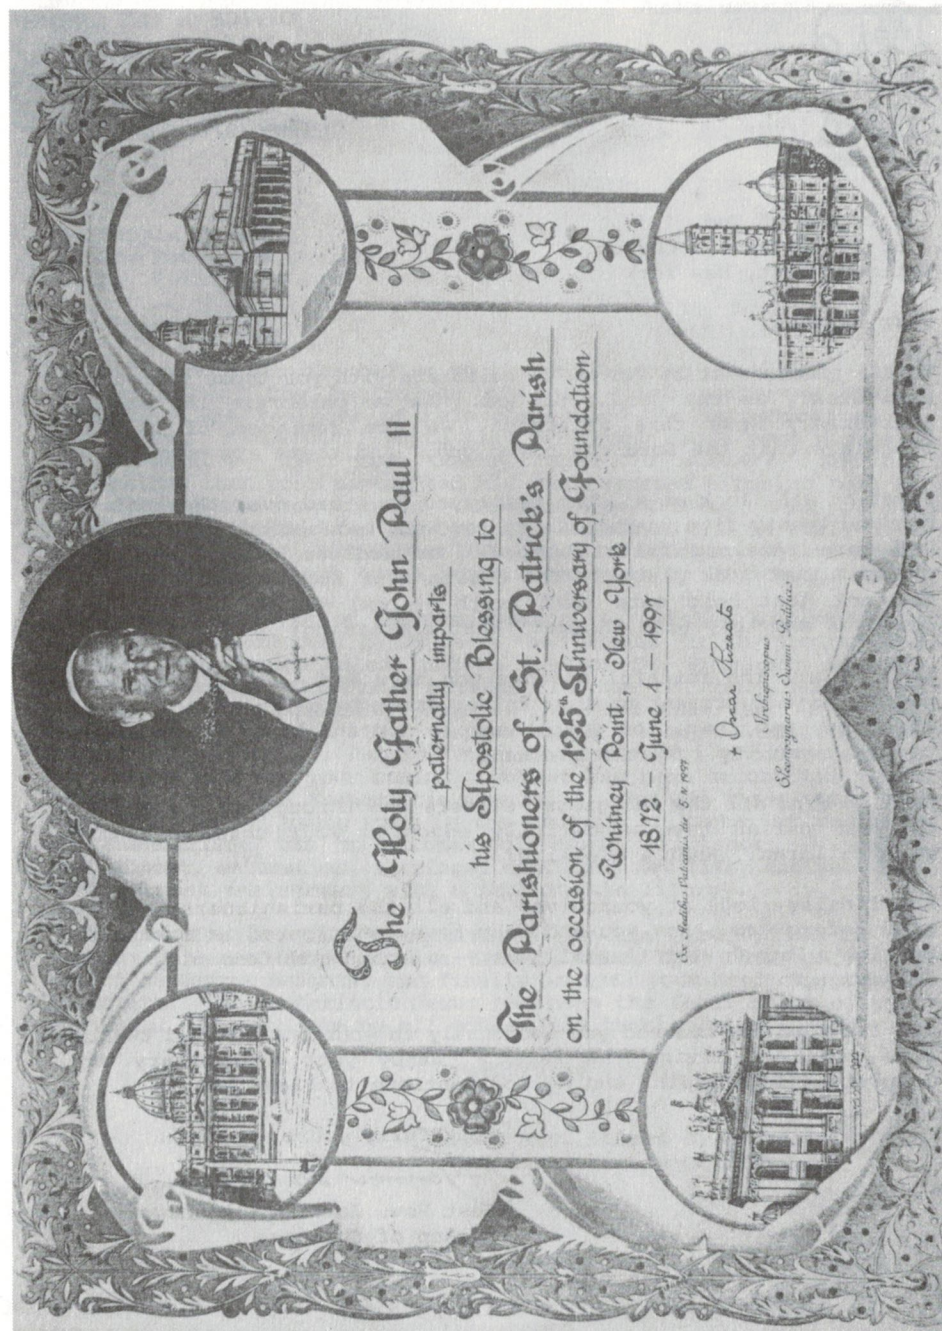 The Holy Father John Paul II
paternally imparts
his Apostolic Blessing to
The Parishioners of St. Patrick's Parish
on the occasion of the 125th Anniversary of Foundation
Whitney Point, New York
1872 – June 1 – 1997
+ Oscar Rizzato
Archiepiscopus
Eleemosynarius Summi Pontificis